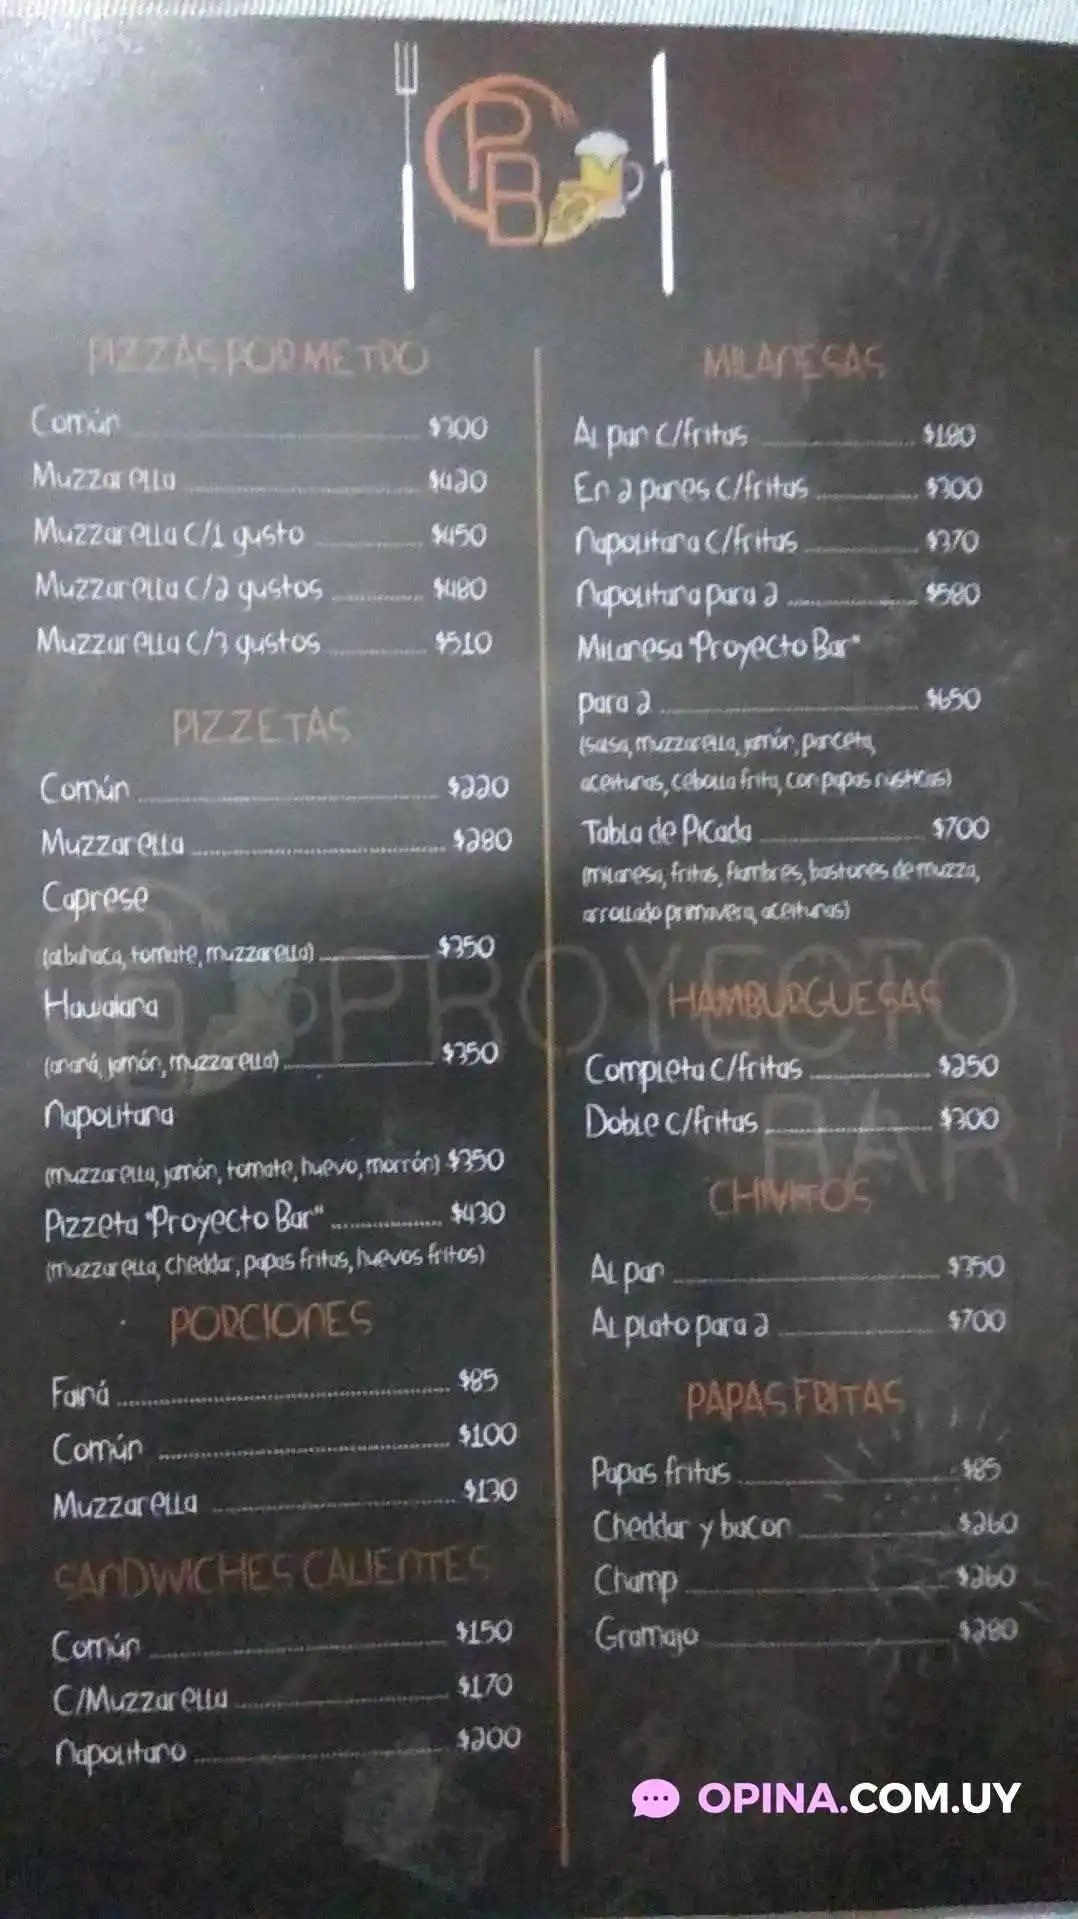 PB
PIZZAS POR METRO
Común $300
Muzzarella $420
Muzzarella c/1 gusto $450
Muzzarella c/2 gustos $480
Muzzarella c/3 gustos $510
PIZZETAS
Común $220
Muzzarella $280
Caprese
(albahaca, tomate, muzzarella) $350
Hawaiana
(ananá, jamón, muzzarella) $350
Napolitana
(muzzarella, jamón, tomate, huevo, morrón) $350
Pizzeta "Proyecto Bar" $430
(muzzarella, cheddar, papas fritas, huevos fritos)
PORCIONES
Fainá $85
Común $100
Muzzarella $130
SANDWICHES CALIENTES
Común $150
C/Muzzarella $170
Napolitano $200
MILANESAS
Al pan c/fritas $180
En 2 panes c/fritas $300
Napolitana c/fritas $370
Napolitana para 2 $580
Milanesa "Proyecto Bar"
para 2 $650
(salsa, muzzarella, jamón, panceta,
aceitunas, cebolla frita, con papas rústicas)
Tabla de Picada $700
(milanesa, fritas, fiambres, bastones de muzza,
arrollado primavera, aceitunas)
HAMBURGUESAS
Completa c/fritas $250
Doble c/fritas $300
CHIVITOS
Al pan $350
Al plato para 2 $700
PAPAS FRITAS
Papas fritas $85
Cheddar y bacon $260
Champ $260
Gramajo $280
PROYECTO
BAR
OPINA.COM.UY